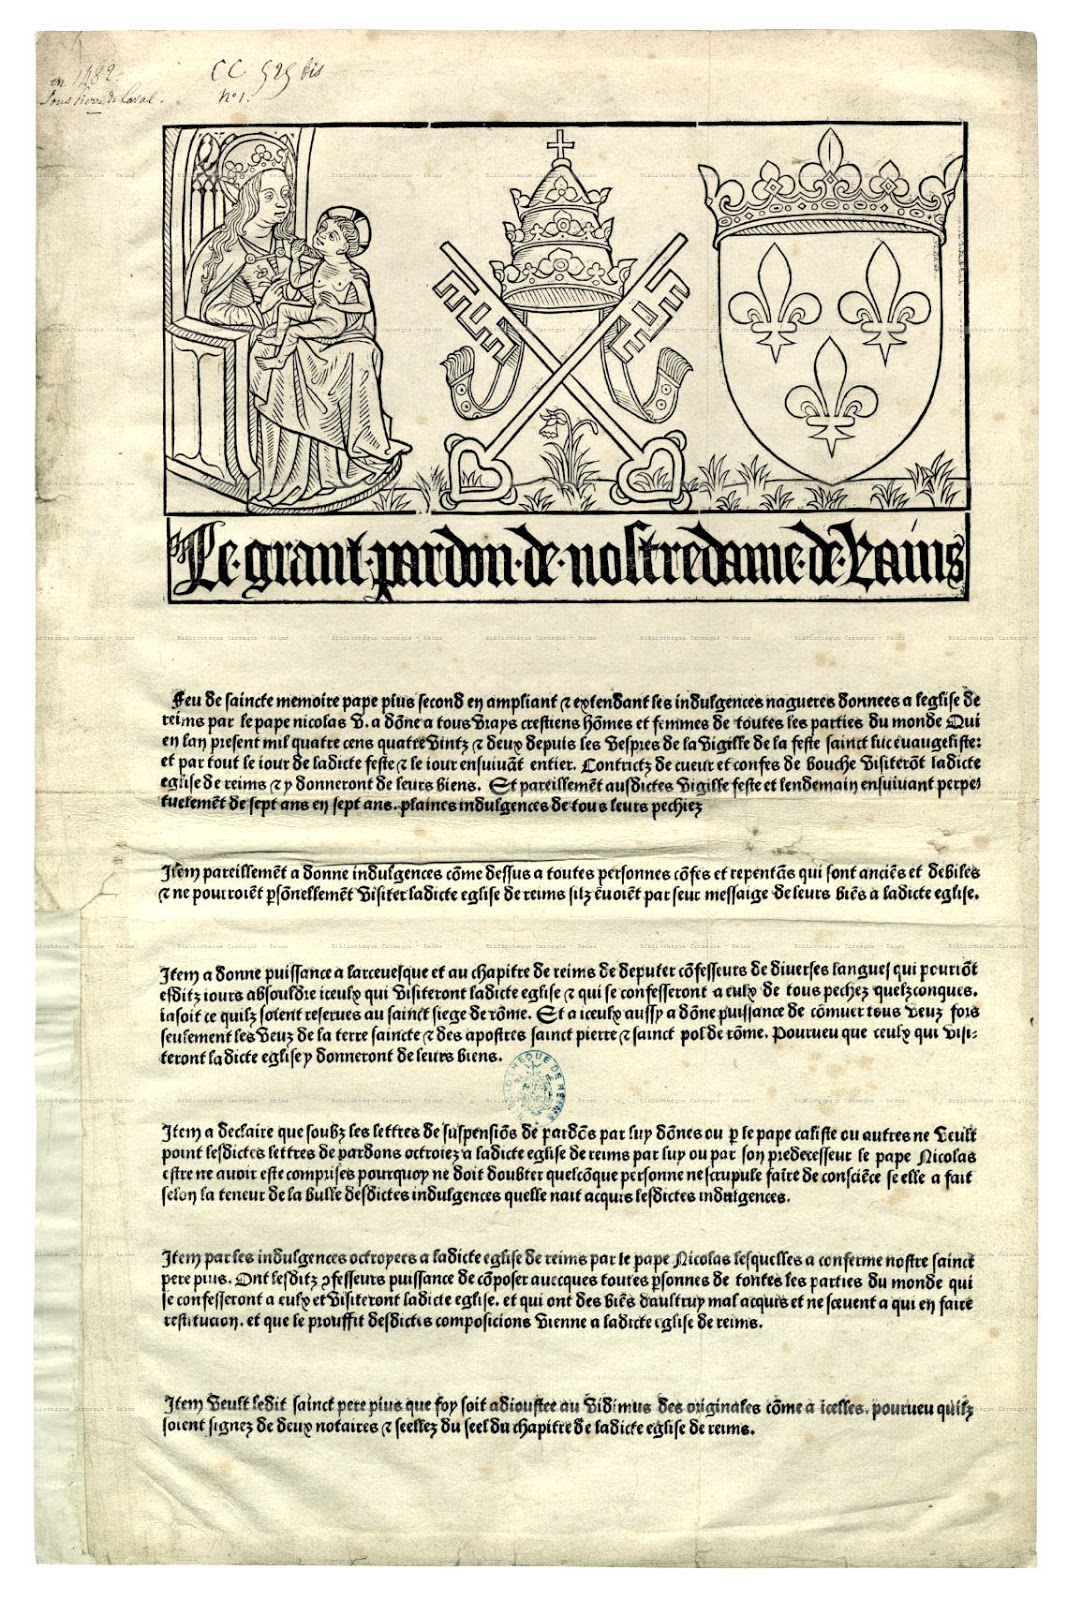 en 1482.
Sous Pierre de Laval.
CC 525 bis
n° 1.
Le·grant·pardon·de·nostredame·de·Rains
Feu de saincte memoire pape pius second en ampliant ⁊ extendant les indulgences nagueres donnees a leglise de
reims par le pape nicolas v. a dōne a tous vrays crestiens hōmes et femmes de toutes les parties du monde Qui
en lan present mil quatre cens quatre vintz ⁊ deux depuis les vespres de la vigille de la feste sainct luc euangeliste:
et par tout le iour de ladicte feste ⁊ le iour ensuiuāt entier. Contrictz de cueur et confes de bouche visiterōt ladicte
eglise de reims ⁊ y donneront de leurs biens. Et pareillemēt ausdictes vigille feste et lendemain ensuiuant perpe⸗
tuelemēt de sept ans en sept ans. plaines indulgences de tous leurs pechiez
Item pareillemēt a donne indulgences cōme dessus a toutes personnes cōfes et repentās qui sont anciēs et debiles
⁊ ne pourroiēt ꝑsōnellemēt visiter ladicte eglise de reims silz ēuoiēt par leur messaige de leurs biēs a ladicte eglise.
Item a donne puissance a larceuesque et au chapitre de reims de deputer cōfesseurs de diuerses langues qui pourrōt
esditz iours absouldre iceulx qui visiteront ladicte eglise ⁊ qui se confesseront a eulx de tous pechez quelzconques.
iasoit ce quilz soient reserues au sainct siege de rōme. Et a iceulx aussy a dōne puissance de cōmuer tous veuz fors
seulement les veuz de la terre saincte ⁊ des apostres sainct pierre ⁊ sainct pol de rōme. Pourueu que ceulx qui visi⸗
teront ladicte eglise y donneront de leurs biens.
BIBLIOTHEQUE DE REIMS
Item a declaire que soubz les lettres de suspensiōs de pardōs par luy dōnes ou ꝑ le pape caliste ou autres ne veult
point lesdictes lettres de pardons octroiez a ladicte eglise de reims par luy ou par son predecesseur le pape Nicolas
estre ne auoir este comprises pourquoy ne doit doubter quelcōque personne ne scrupule faire de consciēce se elle a fait
selon la teneur de la bulle desdictes indulgences quelle nait acquis lesdictes indulgences.
Item par les indulgences octroyees a ladicte eglise de reims par le pape Nicolas lesquelles a conferme nostre sainct
pere pius. Ont lesditz ꝯfesseurs puissance de cōposer auecques toutes ꝑsonnes de toutes les parties du monde qui
se confesseront a eulx et visiteront ladicte eglise. et qui ont des biēs daultruy mal acquis et ne sceuent a qui en faire
restitucion. et que le prouffit desdictes composicions vienne a ladicte eglise de reims.
Item veult ledit sainct pere pius que foy soit adioustee au vidimus des originales cōme a icelles. pourueu quilz
soient signez de deux notaires ⁊ seellez du seel du chapitre de ladicte eglise de reims.
Bibliothèque Carnegie - Reims